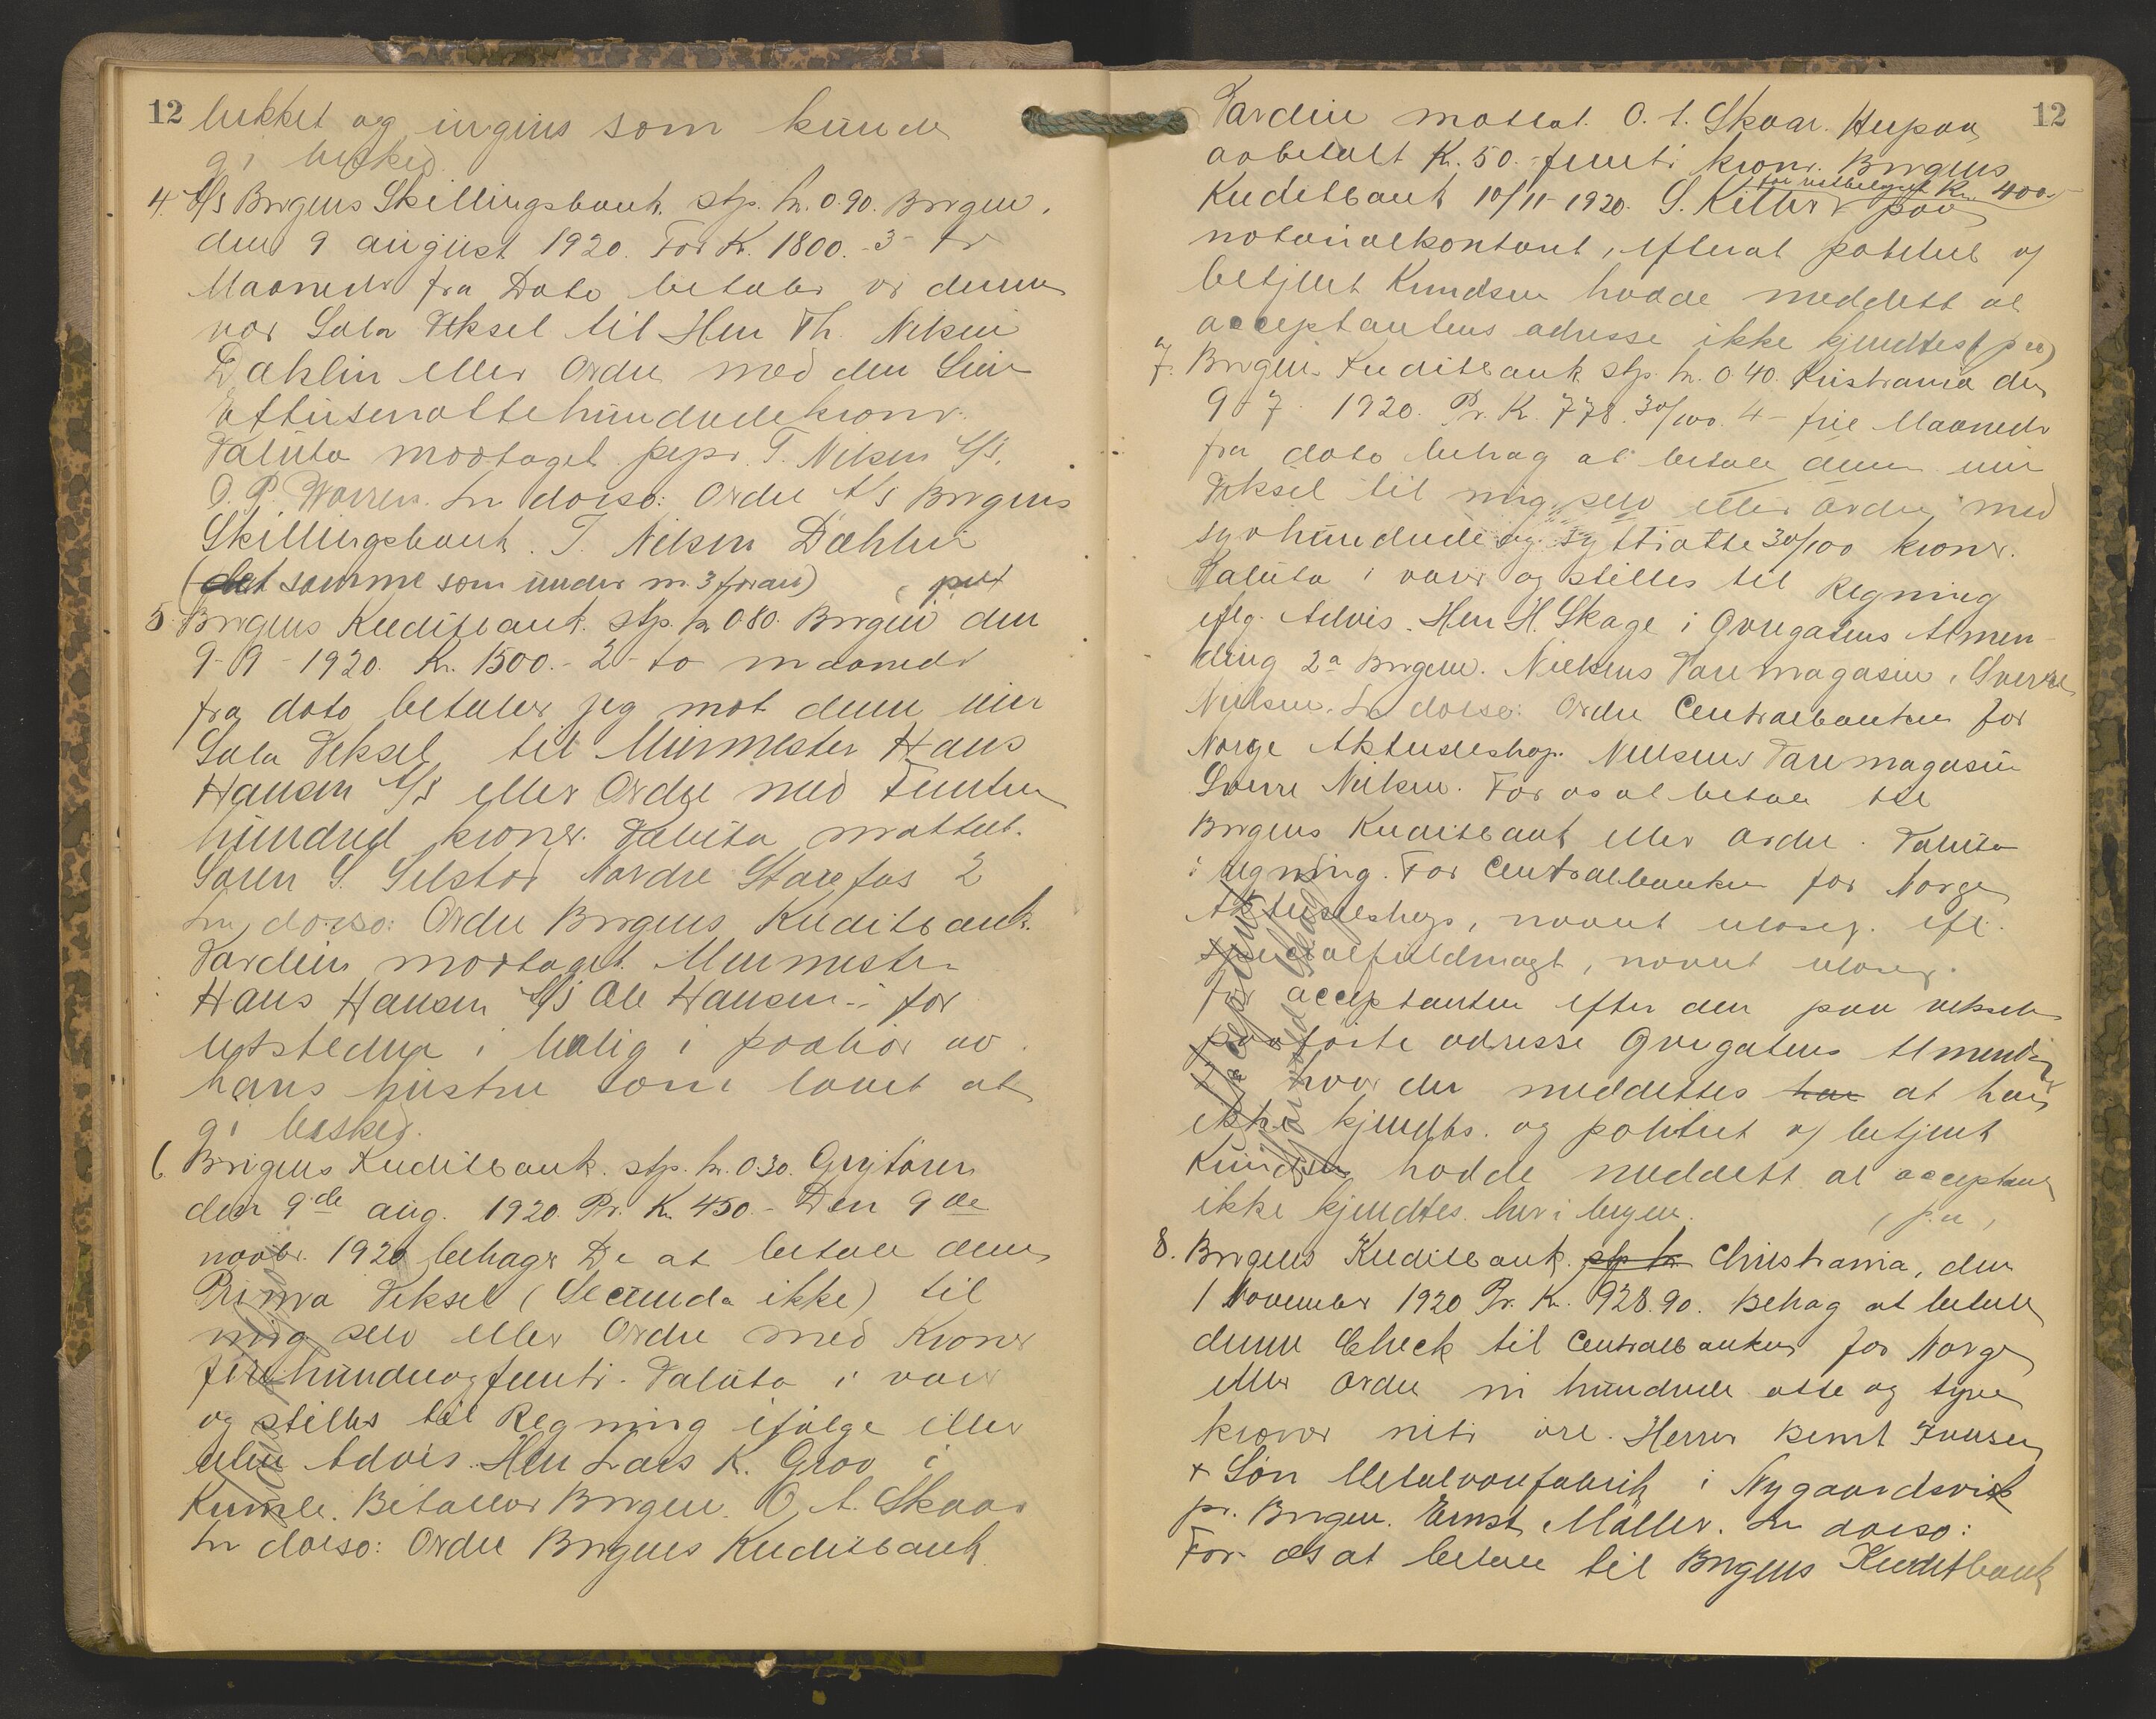 12
lukket og ingens som kunde
gi besked.
4. A/S Bergens Skillingsbank. stp. kr. 0.90. Bergen,
den 9 august 1920. For Kr. 1800.- 3- tre
Maaneder fra Dato betaler vi denne
vor Sola Veksel til Herr Th. Nilsen
Dahlin eller Ordre med den Sum
Ettusenottehundrede kroner.
Valuta modtaget. pr. pr. T. Nilsen A/S.
O. P. Worren. In dorso: Ordre A/S Bergens
Skillingsbank. T. Nilsen Dahlin
(det samme som under nr. 3 foran)
5. Bergens Kreditbank. stp. kr 0.80. Bergen den
9-9-1920. Kr. 1500.- 2- to maaneder
fra dato betaler jeg mot denne min
Sola Veksel til Murmester Hans
Hansen A/S eller Ordre med Femten
hundred kroner. Valuta mottat.
Søren S. Selstø Nordre 2
In dorso: Ordre Bergens Kreditbank.
Værdien modtaget. Murmester
Hans Hansen A/S Ole Hansen.- for
utstederen i bolig i paahør av
hans hustru som lovet at
gi besked.
6. Bergens Kreditbank. stp. kr. 0.30.
den 9de aug. 1920. Pr. Kr. 450.- Den 9de
novbr. 1920 behager De at betale denne
Prima Veksel (Secunda ikke) til
mig selv eller Ordre med Kroner
firehundreogfemti. Valuta i varer
og stilles til Regning ifølge eller
uten Advis. Herr Lars K. Grov i
Kumle. Betales Bergen. O. A. Skaar
In dorso: Ordre Bergens Kreditbank
12
Værdien mottat. O. A. Skaar. Herpaa
avbetalt Kr. 50.- femti kroner. Bergens
Kreditbank 10/11-1920. paa
Kr. 400.-
notarialkontoret, efterat politiet v/
betjent Knudsen hadde meddelt at
acceptantens adresse ikke kjendtes (p.a.)
7. Bergens Kreditbank stp. kr. 0.40. Kristiania den
9-7 1920. Pr. Kr. 778.30/100. 4- fire Maaneder
fra dato behag at betale denne min
Veksel til mig selv eller ordre med
syvhundredeogsyttiotte 30/100 kroner.
Valuta i varer og stilles til Regning
iflg. Advis. Herr H. Skage i Øvregatens Almen-
ding 2a Bergen. Nielsens Varemagasin, Sverre
Nielsen. In dorso: Ordre Centralbanken for
Norge Aktieselskap. Nielsens Varemagasin
Sverre Nielsen. For os at betale til
Bergens Kreditbank eller ordre. Valuta
i regning. For Centralbanken for Norge
Aktieselskap, navnet ulæsel. ifl.
specialfuldmagt, navnet ulæsel.
For acceptanten efter den paa vekselen
paaførte adresse Øvregatens Almending
hvor der meddeltes at han
ikke kjendtes. og politiet v/ betjent
Knudsen hadde meddelt at acceptanten
ikke kjendtes her i byen. (p.a.)
8. Bergens Kreditbank. Christiania, den
1 November 1920 Pr. Kr. 928.90. Behag at betale
denne Check til Centralbanken for Norge
eller Ordre ni hundrede otte og tyve
kroner niti øre. Herrer Bernt Iversen
& Søn Metalvarefabrik i Nygaardsvik
pr. Bergen. Ernst Møller. In dorso:
For os at betale til Bergens Kreditbank